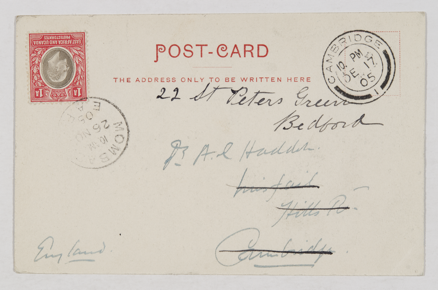 POST-CARD
THE ADDRESS ONLY TO BE WRITTEN HERE
EAST AFRICA AND UGANDA
PROTECTORATES
CAMBRIDGE
10 PM
DE 17
05
1
MOMBASA
22 St Peters Green
Bedford
Dr A.C. Haddon
Innisfail
Hills Rd.
Cambridge
England